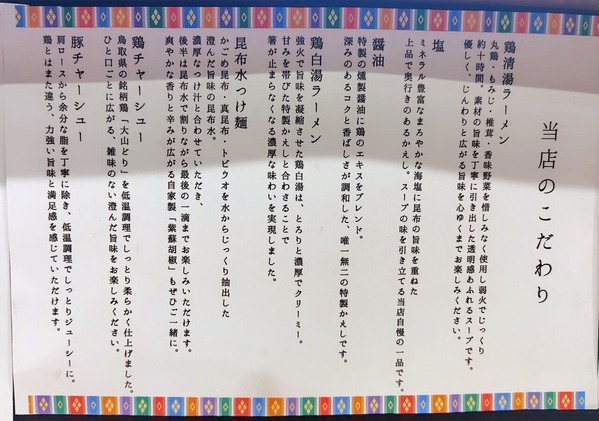 当店のこだわり
鶏清湯ラーメン
丸鶏・もみじ・椎茸・香味野菜を惜しみなく使用し弱火でじっくり
約十時間。素材の旨味を丁寧に引き出した透明感あふれるスープです。
優しく、じんわりと広がる旨味を心ゆくまでお楽しみください。
塩
ミネラル豊富なまろやかな海塩に昆布の旨味を重ねた
上品で奥行きのあるかえし。スープの味を引き立てる当店自慢の一品です。
醤油
特製の燻製醤油に鶏のエキスをブレンド。
深みのあるコクと香ばしさが調和した、唯一無二の特製かえしです。
鶏白湯ラーメン
強火で旨味を凝縮させた鶏白湯は、とろりと濃厚でクリーミー。
甘みを帯びた特製かえしと合わさることで
箸が止まらなくなる濃厚な味わいを実現しました。
昆布水つけ麺
かごめ昆布・真昆布・トビウオを水からじっくり抽出した
澄んだ旨味の昆布水。
濃厚なつけ汁と合わせていただき、
後半は昆布水で割りながら最後の一滴までお楽しみいただけます。
爽やかな香りと辛みが広がる自家製「紫蘇胡椒」もぜひご一緒に。
鶏チャーシュー
鳥取県の銘柄鶏「大山どり」を低温調理でしっとり柔らかく仕上げました。
ひと口ごとに広がる、雑味のない澄んだ旨味をお楽しみください。
豚チャーシュー
肩ロースから余分な脂を丁寧に除き、低温調理でしっとりジューシーに。
鶏とはまた違う、力強い旨味と満足感を感じていただけます。